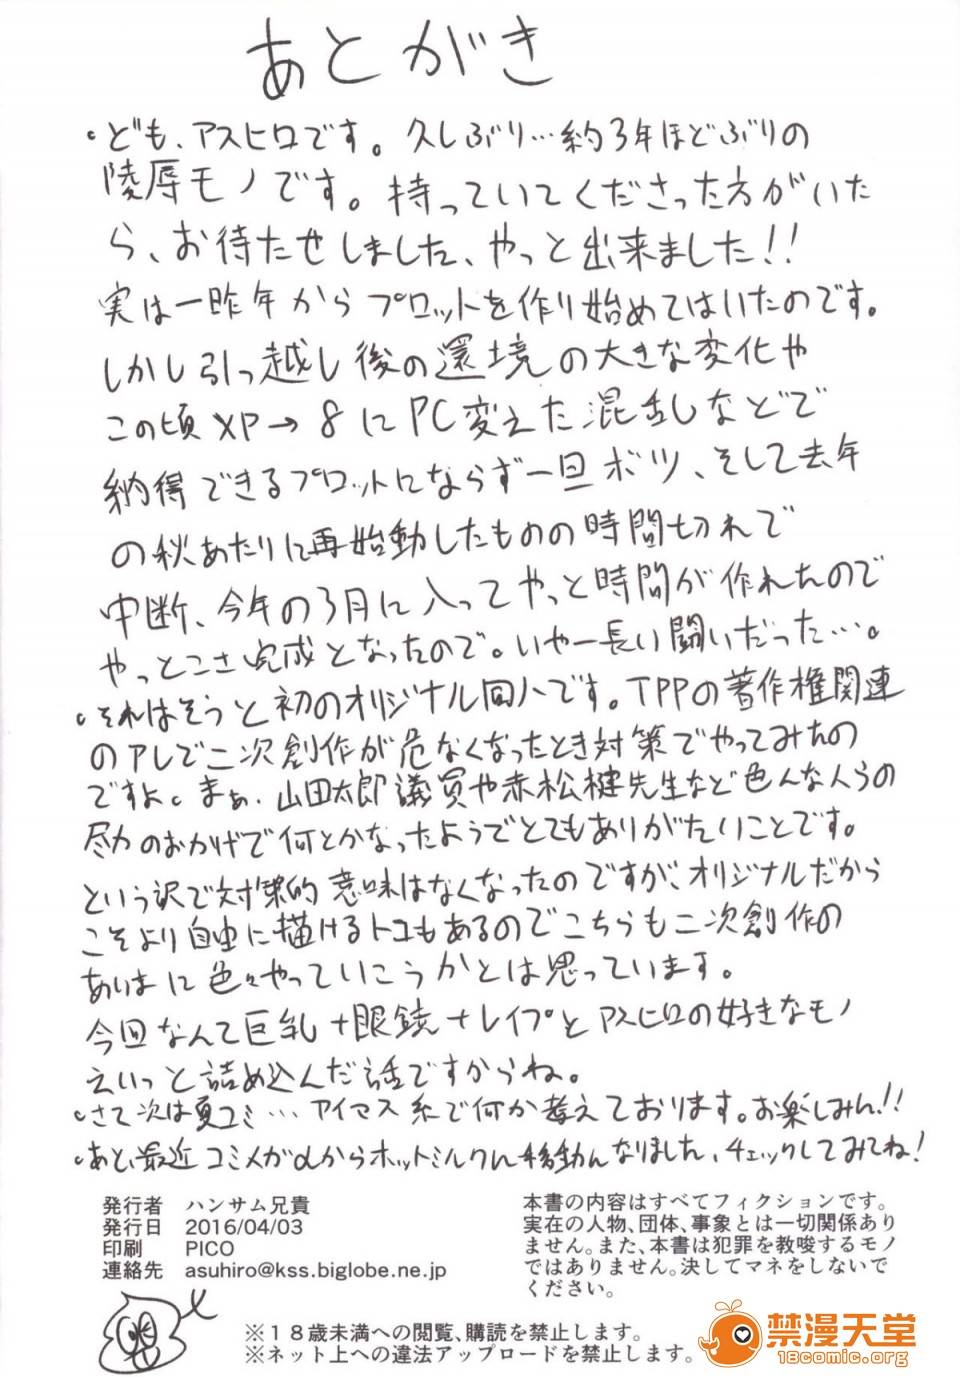 あとがき
・ども、アスヒロです。久しぶり…約3年ほどぶりの
陵辱モノです。持っていてくださった方がいた
ら、お待たせしました、やっと出来ました!!
実は一昨年からプロットを作り始めてはいたのです。
しかし引っ越し後の環境の大きな変化や
この頃XP→8にPC変えた混乱しなどで
納得できるプロットにならず一旦ボツ、そして去年
の秋あたりに再始動したものの時間切れで
中断、今年の3月に入ってやっと時間が作れたので
やっとこさ完成となったので。いやー長い闘いだった…。
・それはそうと初のオリジナル同人です。TPPの著作権関連
のアレで二次創作が危なくなったとき対策でやってみたの
ですよ。まぁ、山田太郎議員や赤松健先生など色んな人らの
尽力のおかげで何とかなったようでとてもありがたいことです。
という訳で対策的意味はなくなったのですが、オリジナルだから
こそより自由に描けるトコもあるのでこちらも二次創作の
あいまに色々やっていこうかとは思っています。
今回なんて巨乳+眼鏡+レイプとアスヒロの好きなモノ
えいっと詰め込んだ話ですからね。
・さて次は夏コミ…アイマス系で何か考えております。お楽しみん!!
・あと、最近コミメガαからホットミルクに移動になりました、チェックしてみてね!
発行者 ハンサム兄貴
発行日 2016/04/03
印刷 PICO
連絡先 asuhiro@kss.biglobe.ne.jp
本書の内容はすべてフィクションです。
実在の人物、団体、事象とは一切関係あり
ません。また、本書は犯罪を教唆するモノ
ではありません。決してマネをしないで
ください。
※18歳未満への閲覧、購読を禁止します。
※ネット上への違法アップロードを禁止します。
禁漫天堂
18comic.org